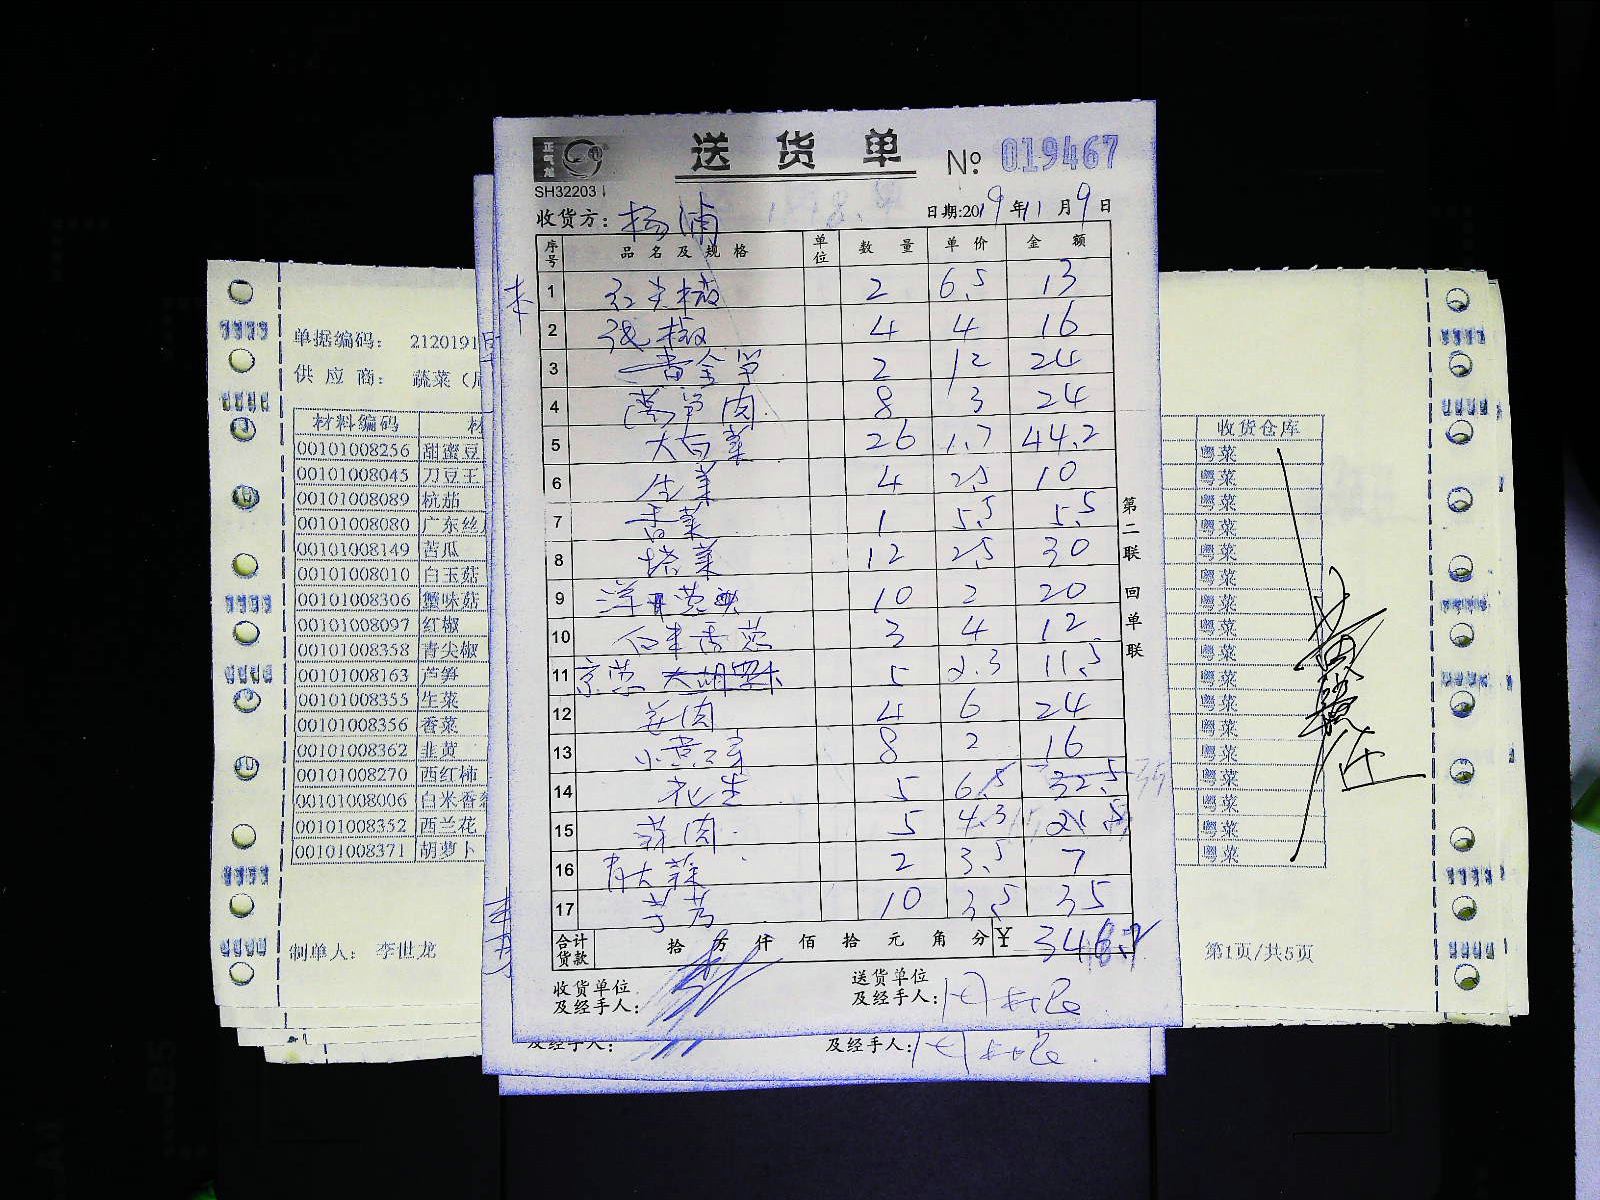 正气龙
送货单 № 019467
SH32203
收货方: 杨浦 日期:2019年11月9日
序号 品名及规格 单位 数量 单价 金额
1 红尖椒 2 6.5 13
2 线椒 4 4 16
3 黄金笋 2 12 24
4 莴笋肉 8 3 24
5 大白菜 26 1.7 44.2
6 生菜 4 2.5 10
7 香菜 1 5.5 5.5
8 塔菜 12 2.5 30
9 10 2 20
10 白米香葱 3 4 12
11 京葱 5 2.3 11.5
12 姜肉 4 6 24
13 小黄豆芽 8 2 16
14 花生 5 6.5 32.5
15 蒜肉 5 4.3 21.5
16 青大蒜 2 3.5 7
17 芋艿 10 3.5 35
合计货款 拾 万 仟 佰 拾 元 角 分 ¥ 346.7
收货单位及经手人:
送货单位及经手人:
第二联 回单联
及经手人:
及经手人:
单据编码: 2120191
供应商: 蔬菜
材料编码 材
00101008256 甜蜜豆
00101008045 刀豆王
00101008089 杭茄
00101008080 广东丝
00101008149 苦瓜
00101008010 白玉菇
00101008306 蟹味菇
00101008097 红椒
00101008358 青尖椒
00101008163 芦笋
00101008355 生菜
00101008356 香菜
00101008362 韭黄
00101008270 西红柿
00101008006 白米香葱
00101008352 西兰花
00101008371 胡萝卜
制单人: 李世龙
收货仓库
粤菜
粤菜
粤菜
粤菜
粤菜
粤菜
粤菜
粤菜
粤菜
粤菜
粤菜
粤菜
粤菜
粤菜
粤菜
粤菜
粤菜
第1页/共5页